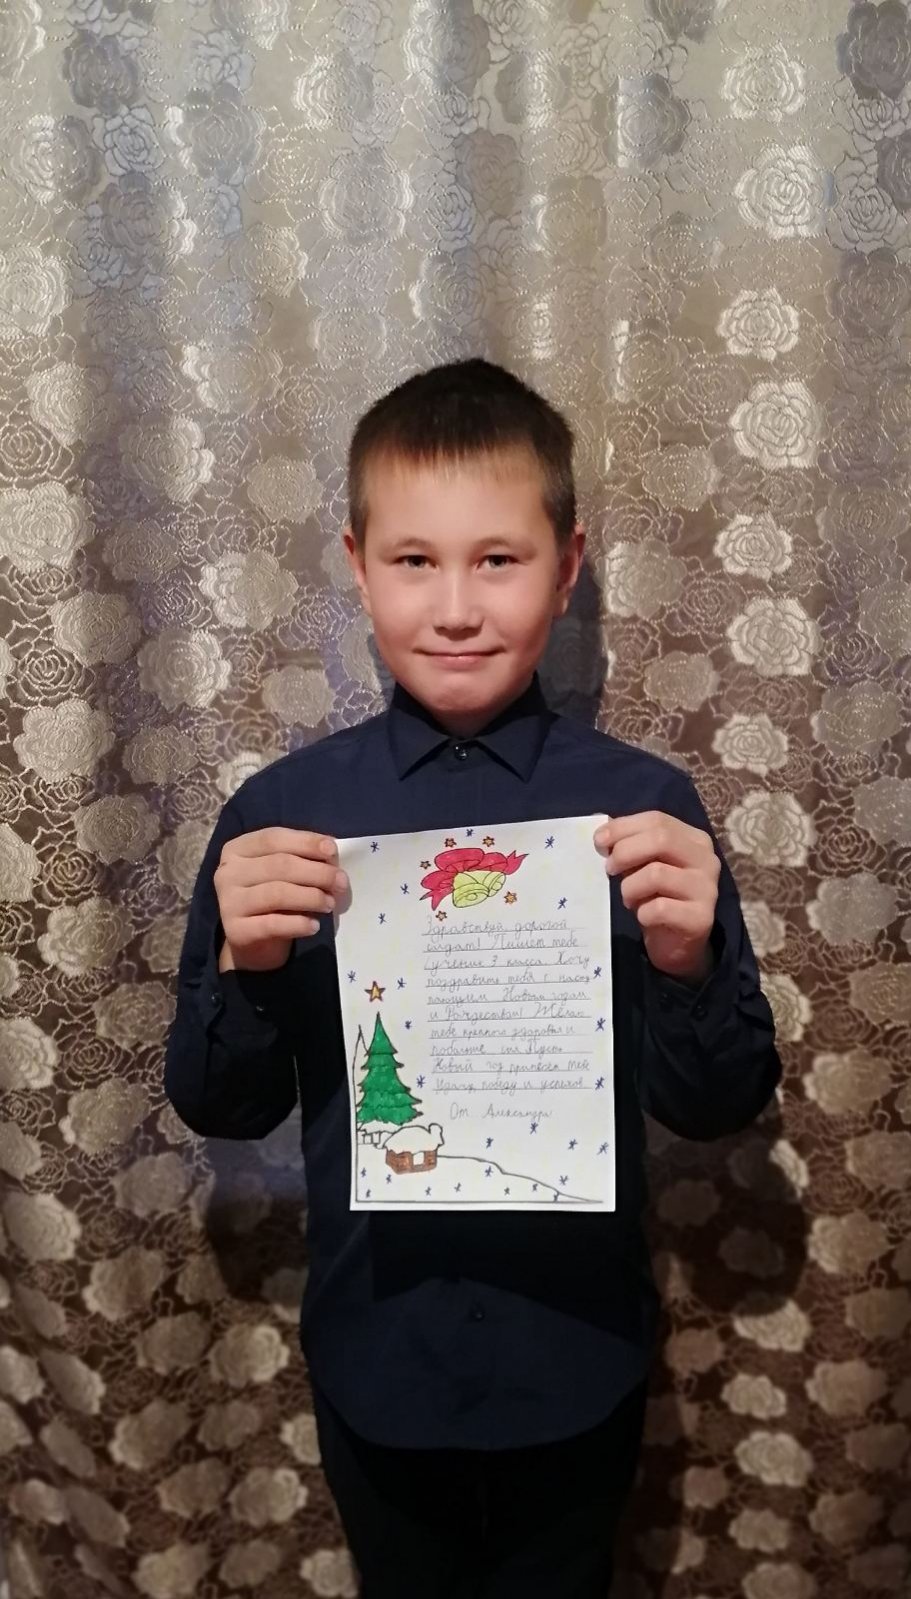 Здравствуй, дорогой
солдат! Пишет тебе
ученик 3 класса. Хочу
поздравить тебя с насту
пающим Новым годом
и Рождеством! Желаю
тебе крепкого здоровья и
побольше сил. Пусть
Новый год принесёт тебе
удачу, победу и успехов.
От Александра